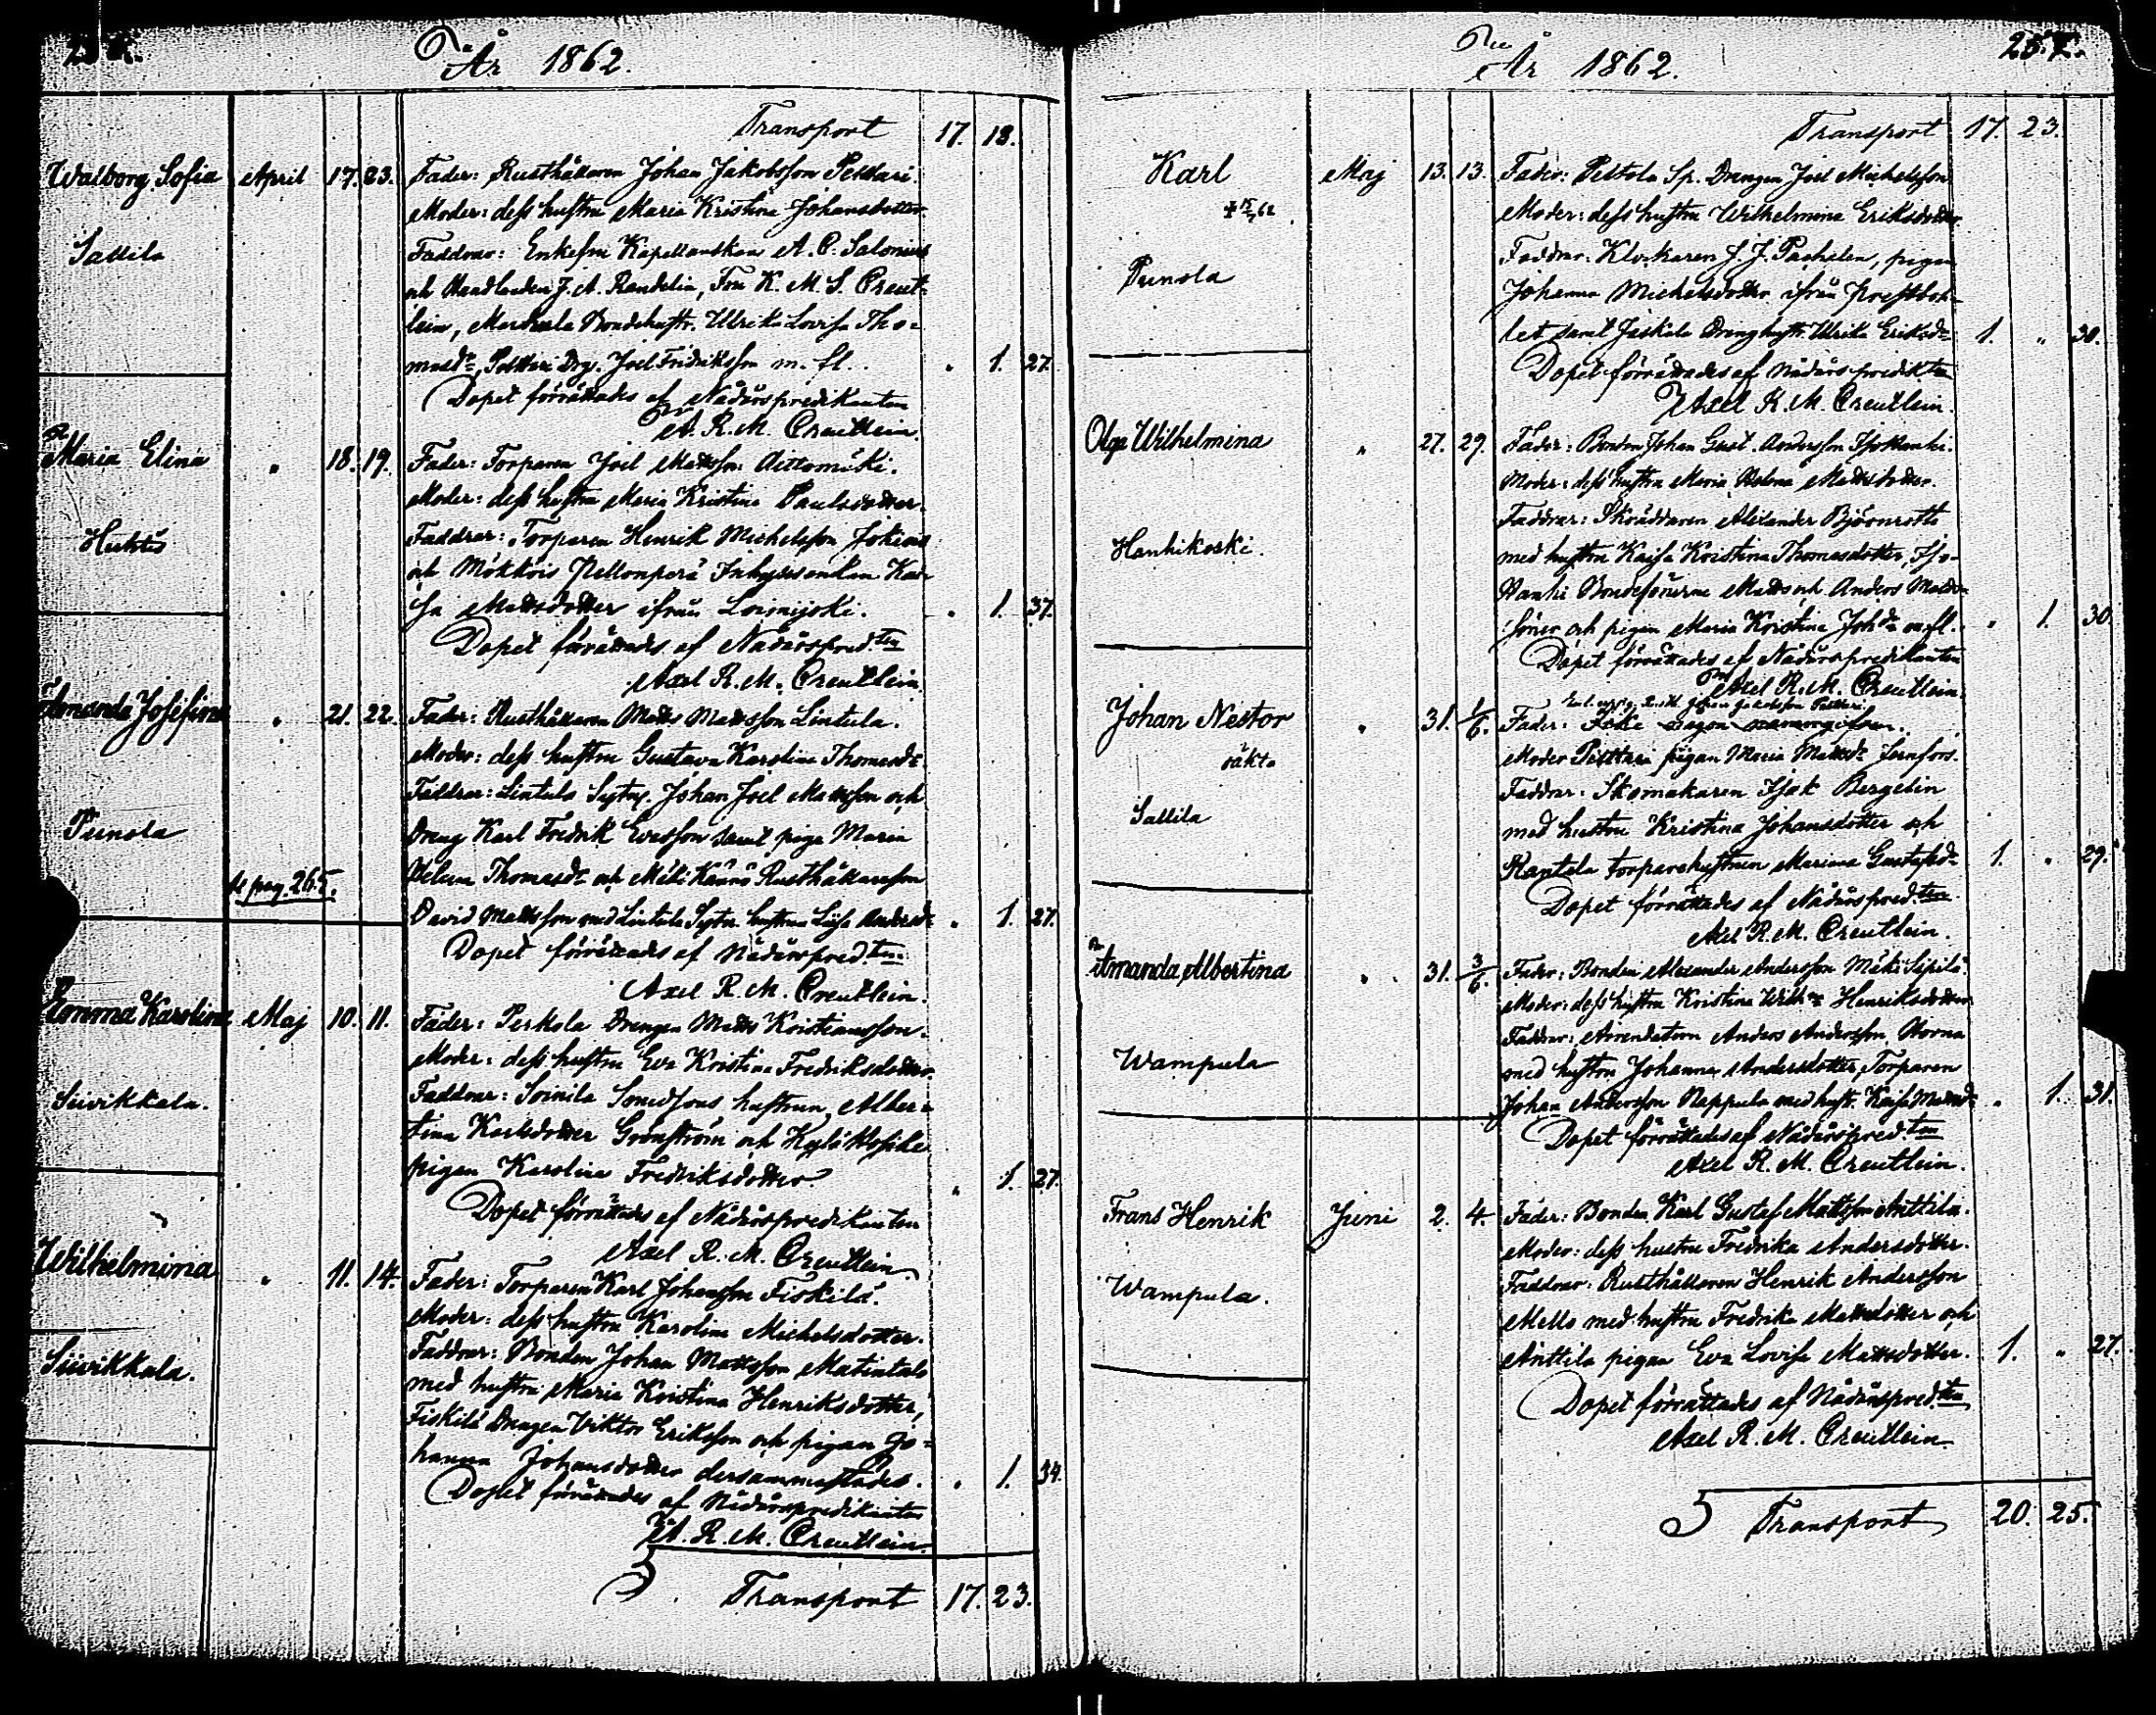 År 1862.
Transport 17. 18.
Walborg Sofia April 17. 23. Fader: Rusthållaren Johan Jakobsson Pettari.
Moder: dess hustru Maria Kristina Johansdotter.
Sallila Faddrar: Enkefru Kapellanskan A. C. Salonius
och Handlanden J. A. Randelin, Fru K. M. S. Creut-
lein, Bondehustr. Ulrika Lovisa Tho-
masdr, Pettari Drg. Joel Fridriksson m. fl. " 1. 27.
Dopet förrättades af Nådårspredikanten
A. R. M. Creutlein.
Maria Elina " 18. 19. Fader: Torparen Joel Mattsson Aittomäki.
Moder: dess hustru Maria Kristina Paulsdotter.
Huhtis Faddrar: Torparen Henrik Michelsson Jokinen
och Mökkois Pellonperä Inhysesenkan Kai-
sa Mattsdotter ifrån Loimijoki. " 1. 37.
Dopet förrättades af Nådårspred.ten
Axel R. M. Creutlein.
Amanda Josefina " 21. 22. Fader: Rusthållaren Matts Mattsson Lintula.
Moder: dess hustru Gustava Karolina Thomasdr.
Faddrar: Lintula Sytng. Johan Joel Mattsson och
Punola Dräng Karl Fredrik Evasson samt piga Maria
Helena Thomasdr och Mäki Kännö Rusthållaresson
se pag. 265.
David Mattsson med Lintula Sytn. hustrun Lisa Andersdr. " 1. 27.
Dopet förrättades af Nådårspred.ten
Axel R. M. Creutlein.
Emma Karolina Maj 10. 11. Fader: Perkola Drengen Matts Kristiansson.
Moder: dess hustru Eva Kristina Fredriksdotter.
Siivikkala. Faddrar: Soinila Smedsons hustrun, Alber-
tina Karlsdotter Grönström och
pigan Karolina Fredriksdotter. " 1. 27.
Dopet förrättades af Nådårspredikanten
Axel R. M. Creutlein.
Wilhelmina " 11. 14. Fader: Torparen Karl Johansson Fiskilä.
Moder: dess hustru Karolina Michelsdotter.
Siivikkala. Faddrar: Bonden Johan Mattsson Matintalo
med hustru Maria Kristina Henriksdotter,
Fiskilä Drengen Viktor Eriksson och pigan Jo-
hanna Johansdotter dersammastädes. " 1. 34.
Dopet förrättades af Nådårspredikanten
A. R. M. Creutlein.
Transport 17. 23.
År 1862. 257.
Transport 17. 23.
Karl Maj 13. 13. Fader: Pettola Sp. Drengen Joel Michelsson
Moder: dess hustru Wilhelmina Eriksdotter.
Punola Faddrar: Klockaren J. J. Pachalen, pigan
Johanna Michelsdotter ifrån Prestbol-
let samt Jaskala Dränghustr. Ulrika Eriksdr. 1. " 30.
Dopet förrättades af Nådårspredikten
Axel R. M. Creutlein.
Olga Wilhelmina " 27. 29. Fader: Bonden Johan Gust. Andersson Isotanki.
Moder: dess hustru Maria Helena Mattsdotter.
Hanhikoski. Faddrar: Skräddaren Alexander Björnroth
med hustru Kaisa Kristina Thomasdotter, Iso-
tanki Bondesönerne Matts och Anders Matts-
söner och pigan Maria Kristina Johdr. m. fl. " 1. 30.
Dopet förrättades af Nådårspredikanten
Axel R. M. Creutlein.
Johan Nestor " 31. 1/6. Fader: Icke
oäkta Moder Pettari pigan Maria Mattsdr.
Faddrar: Skomakaren Isak Bergelin
Sallila med hustru Kristina Johansdotter och
Rantala torparehustrun Mariana Gustafsdr. 1. " 29.
Dopet förrättades af Nådårspred.ten
Axel R. M. Creutlein.
Amanda Albertina " 31. 3/6. Fader: Bonden Alexander Andersson Mäki Sipilä.
Moder: dess hustru Kristina Wilhna Henriksdotter
Faddrar: Arrendatorn Anders Andersson
Wampula med hustru Johanna Andersdotter, Torparen
Johan Andersson Rappula med hustr. Kaisa Mattsdr. " 1. 31.
Dopet förrättades af Nådårspred.ten
Axel R. M. Creutlein.
Frans Henrik Juni 2. 4. Fader: Bonden Karl Gustaf Mattsson Anttila.
Moder: dess hustru Fredrika Andersdotter.
Wampula. Faddrar: Rusthållaren Henrik Andersson
Mello med hustru Fredrika Mattsdotter och
Anttila pigan Eva Lovisa Mattsdotter. 1. " 27.
Dopet förrättades af Nådårspred.ten
Axel R. M. Creutlein.
Transport 20. 25.